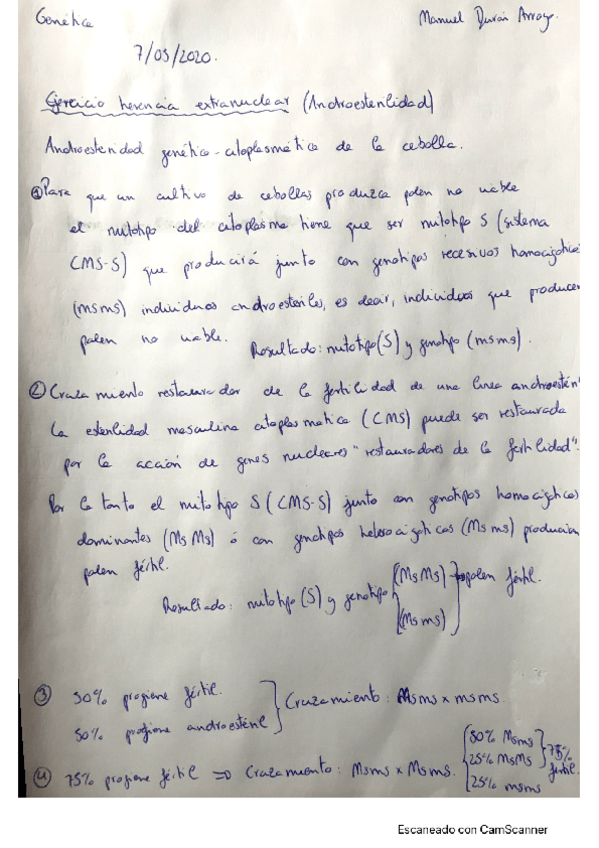 Genética
Manuel Durán Arroyo.
7/05/2020.
Ejercicio herencia extranuclear (Androesterilidad)
Androesterilidad genético-citoplasmática de la cebolla.
① Para que un cultivo de cebollas produzca polen no viable
el mitotipo del citoplasma tiene que ser mitotipo S (sistema
CMS-S) que producirá junto con genotipos recesivos homocigóticos
(msms) individuos androestériles, es decir, individuos que producen
polen no viable.
Resultado: mitotipo (S) y genotipo (msms).
② Cruzamiento restaurador de la fertilidad de una línea androestéril
La esterilidad masculina citoplasmática (CMS) puede ser restaurada
por la acción de genes nucleares "restauradores de la fertilidad".
Por lo tanto el mitotipo S (CMS-S) junto con genotipos homocigóticos
dominantes (MsMs) ó con genotipos heterocigóticos (Msms) producian
polen fértil.
Resultado: mitotipo (S) y genotipo (MsMs) polen fértil.
(Msms)
③ 50% progiene fértil.
50% progiene androestéril
Cruzamiento: Msms x msms.
④ 75% progiene fértil ⇒ Cruzamiento: Msms x Msms.
50% Msms
25% MsMs
75% fértil.
25% msms
Escaneado con CamScanner